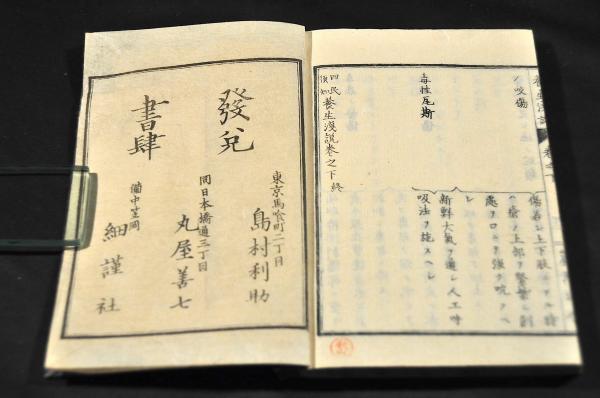 ノ咬傷
傷若シ上下肢
ハ瘡ノ上部ヲ緊紮シ
處ヲ口ニテ強ク吮フヘ
シ
毒性瓦斯
新鮮大氣ヲ通シ人工呼
吸法ヲ施スヘシ
四民須知養生漫説卷之下終
發兌
書肆
東京馬喰町二丁目
島村利助
同日本橋通三丁目
丸屋善七
備中笠岡
細謹社